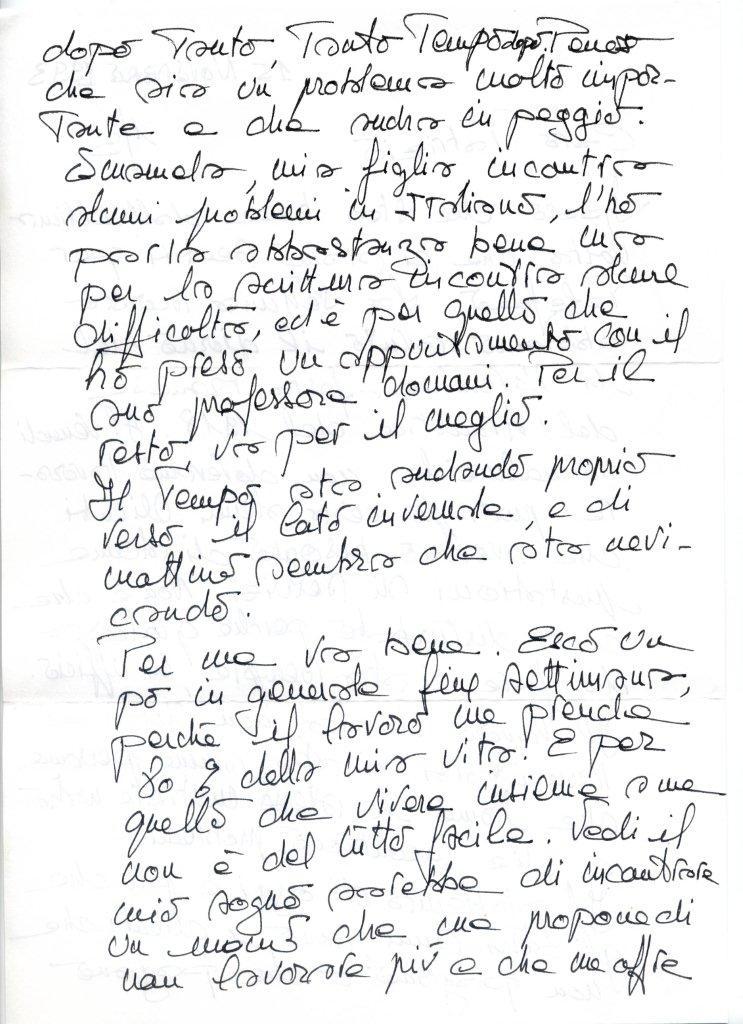 dopo Tanto, Tanto Tempo dopo. Penso
che sia un problema molto impor-
Tante e che andra in peggio.
mia figlia, incontra
alcuni problemi in Italiano, l'ho
parla abbastanza bene ma
per la scrittura incontra alcune
difficolta, ed è per quello che
ho preso un appuntamento con il
suo professore domani. Per il
resto, va per il meglio.
Il Tempo sta andando proprio
verso il lato invernale, e di
mattino sembra che sta nevi-
cando.
Per me va bene. Esco un
po in generale fine settimana,
perche il lavoro me prende
80% della mia vita! E per
quello che vivere insieme a me
non è del tutto facile. Vedi il
mio sogno sarebbe di incontrare
un uomo che me propone di
non lavorare più e che me offre